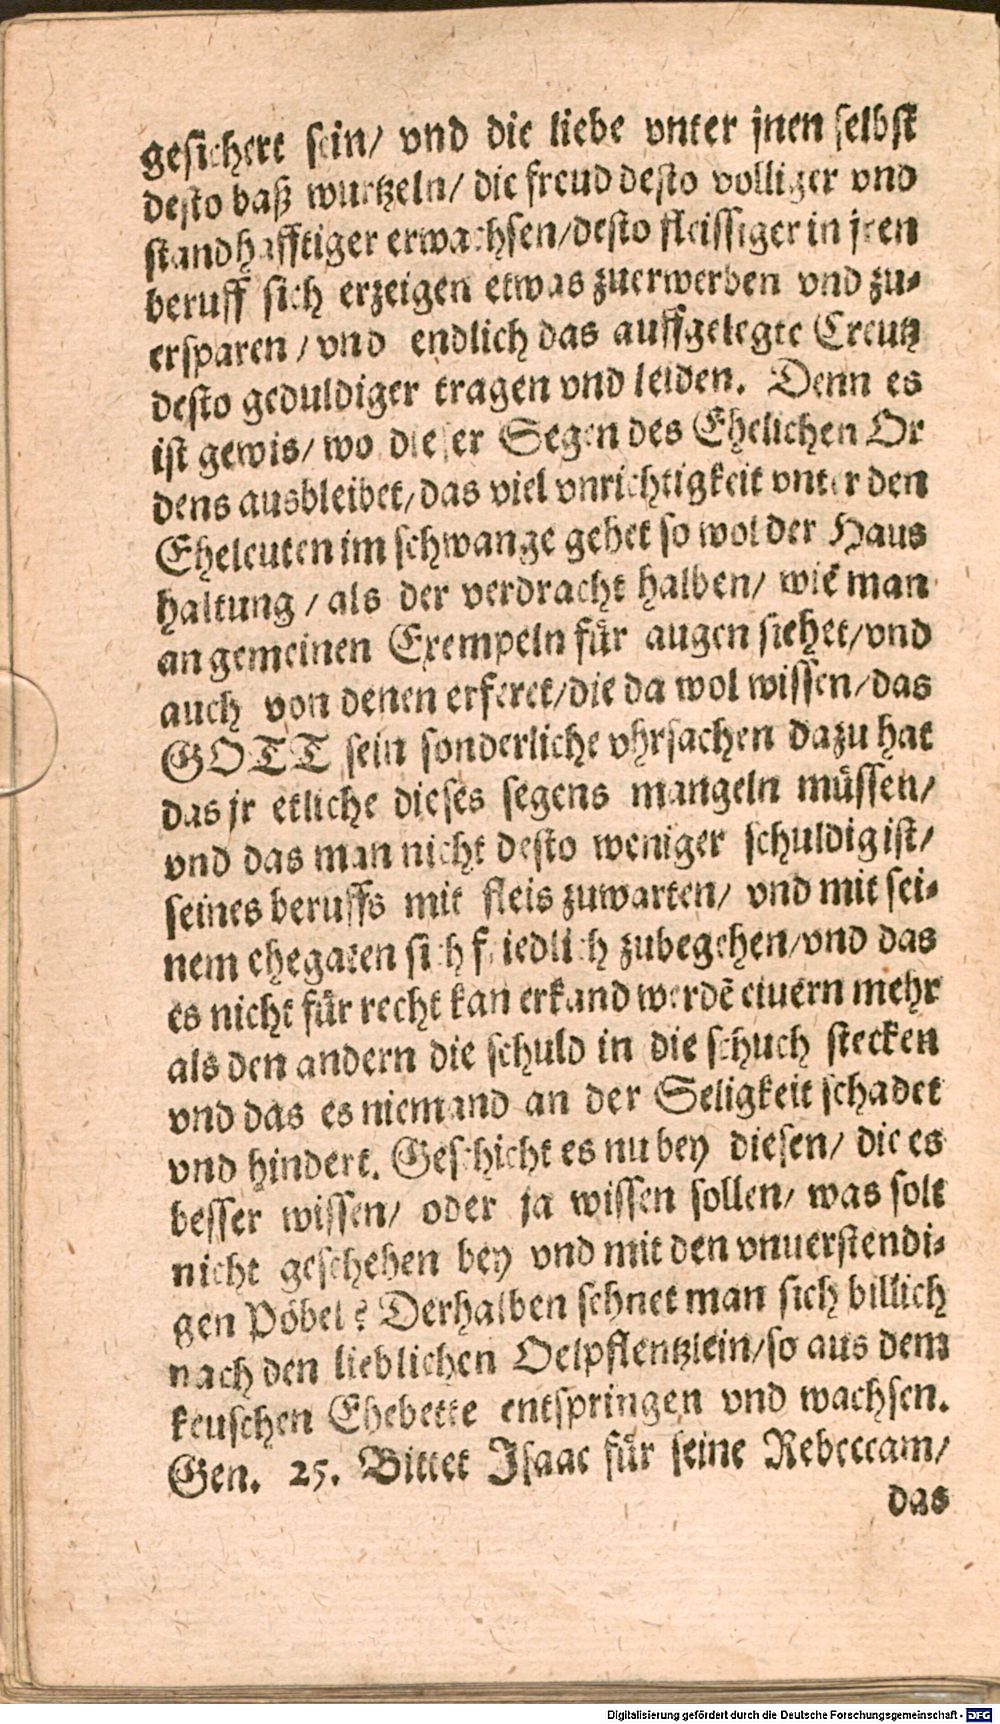 gesichert sein/ vnd die liebe vnter jnen selbst
desto baß wurtzeln/ die freud desto volliger vnd
standhafftiger erwachsen/desto fleissiger in jren
beruff sich erzeigen etwas zuerwerben vnd zu-
ersparen / vnd endlich das auffgelegte Creutz
desto geduldiger tragen vnd leiden. Denn es
ist gewis/ wo dieser Segen des Ehelichen Or
dens ausbleibet/das viel vnrichtigkeit vnter den
Eheleuten im schwange gehet so wol der Haus
haltung / als der verdracht halben/ wie man
an gemeinen Exempeln für augen siehet/vnd
auch von denen erferet/die da wol wissen/das
GOTT sein sonderliche vhrsachen dazu hat
das jr etliche dieses segens mangeln müssen/
vnd das man nicht desto weniger schuldig ist/
seines beruffs mit fleis zuwarten/ vnd mit sei-
nem ehegaten sich friedlich zubegehen/vnd das
es nicht für recht kan erkand werdē einern mehr
als den andern die schuld in die schuch stecken
vnd das es niemand an der Seligkeit schadet
vnd hindert. Geschicht es nu bey diesen/ die es
besser wissen/ oder ja wissen sollen/ was solt
nicht geschehen bey vnd mit den vnuerstendi-
gen Pöbel? Derhalben sehnet man sich billich
nach den lieblichen Oelpflentzlein/so aus dem
keuschen Ehebette entspringen vnd wachsen.
Gen. 25. Bittet Isaac für seine Rebeccam/
das
Digitalisierung gefördert durch die Deutsche Forschungsgemeinschaft - DFG